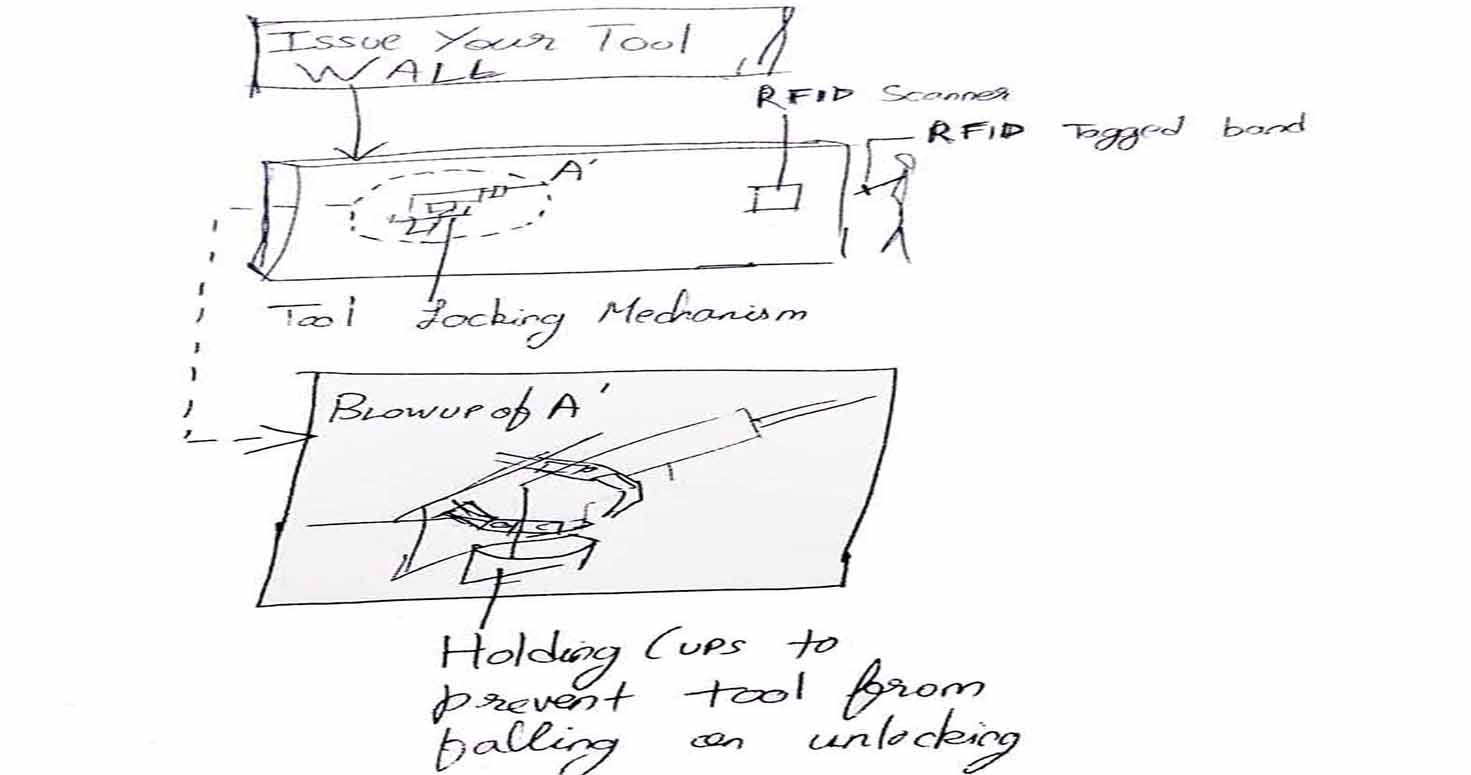 Issue Your Tool
WALL
RFID Scanner
RFID Tagged band
A'
Tool Locking Mechanism
Blowup of A'
Holding Cups to
prevent tool from
falling on unlocking